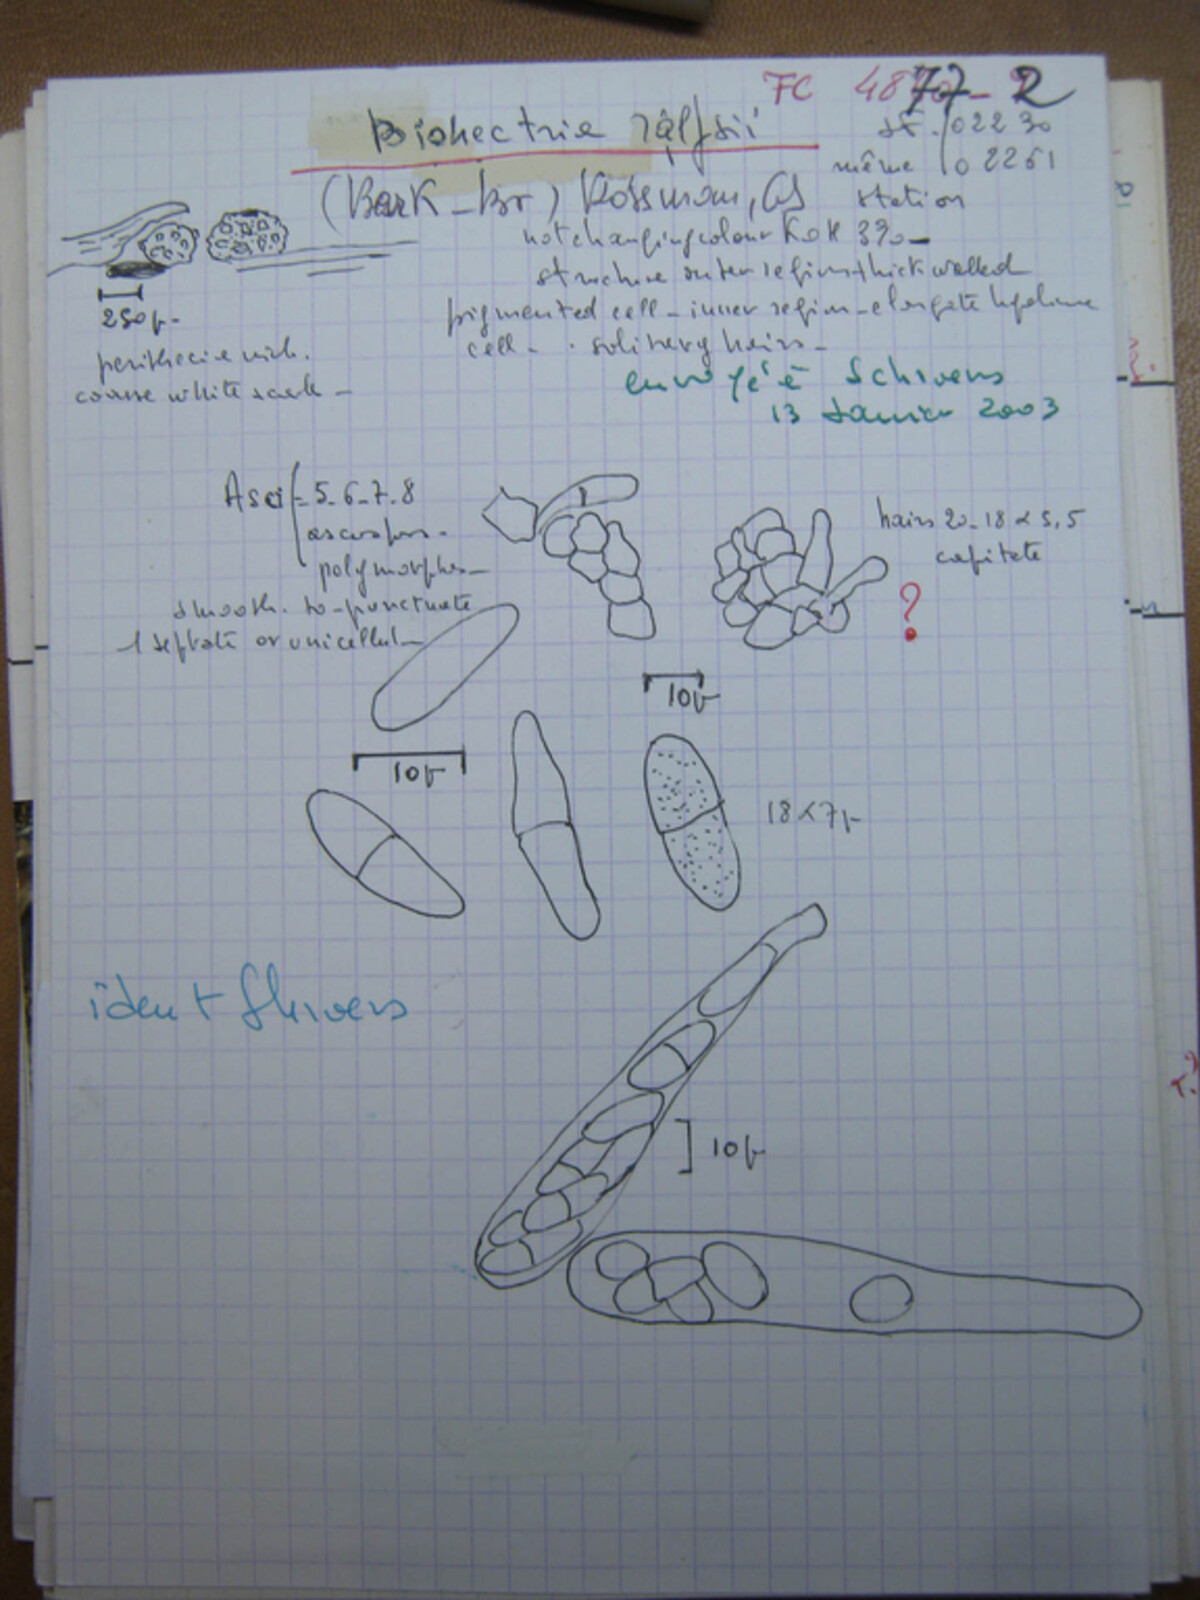 FC 4877-2
Bionectria ralfsii
st. 02230
même 02251
station
(Berk-br) Rossman, GS
not changing colour KOH 3%-
structure outer region thick walled
pigmented cell - inner region - elongate hyaline
cell - . solitary hairs -
250µ.
perithecia with.
coarse white scale -
envoyé à Schroers
13 Janvier 2003
Asci - 5-6-7-8
ascospor.
polymorphes -
smooth. to - punctuate
1 septate or unicellul -
hairs 20-18 x 5,5
capitate
?
10µ
10µ
18x7µ
ident Shroers
10µ